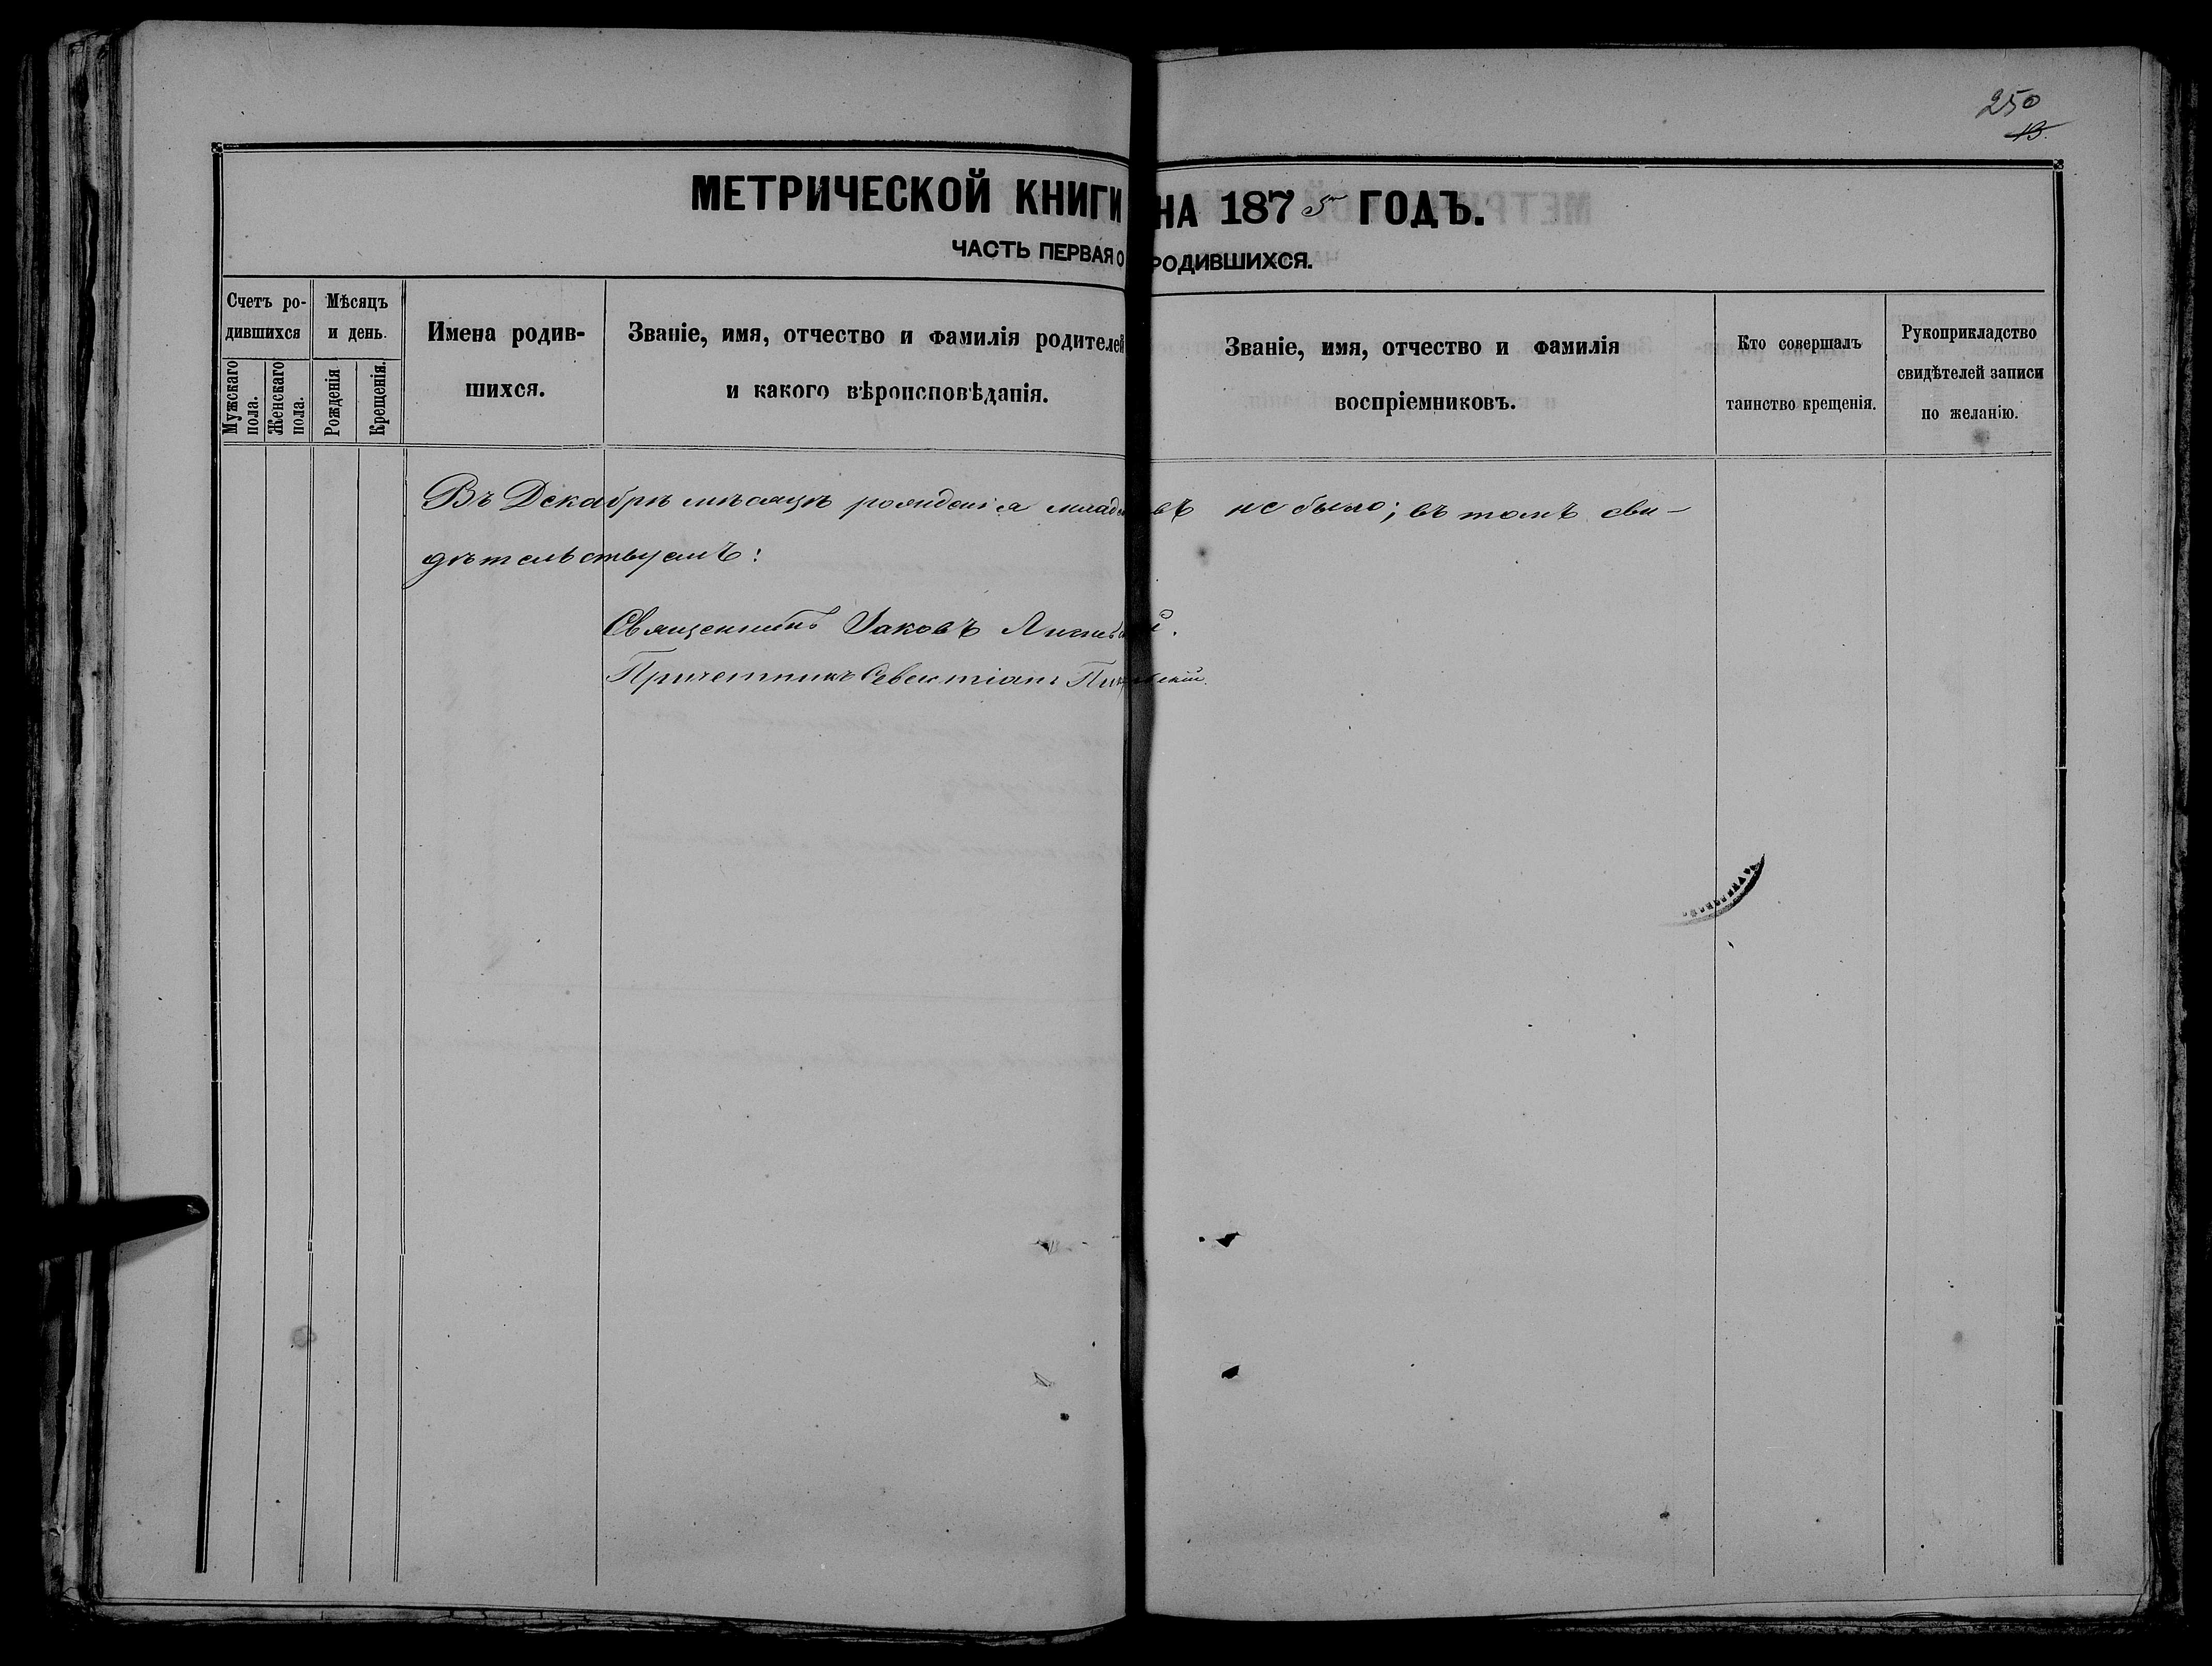 250
13.
МЕТРИЧЕСКОЙ КНИГИ НА 1875 ГОДЪ.
ЧАСТЬ ПЕРВАЯ О РОДИВШИХСЯ.
Счетъ ро-
дившихся
Мужскаго пола.
Женскаго пола.
Мѣсяцъ
и день.
Рожденія
Крещенія.
Имена родив-
шихся.
Званіе, имя, отчество и фамилія родителей
и какого вѣроисповѣданія.
Званіе, имя, отчество и фамилія
воспріемниковъ.
Кто совершалъ
таинство крещенія.
Рукоприкладство
свидѣтелей записи
по желанію.
Въ Декабрѣ мѣсяцѣ рожденія не было; въ томъ сви-
дѣтельствуемъ:
Священникъ Іаковъ
Причетникъ